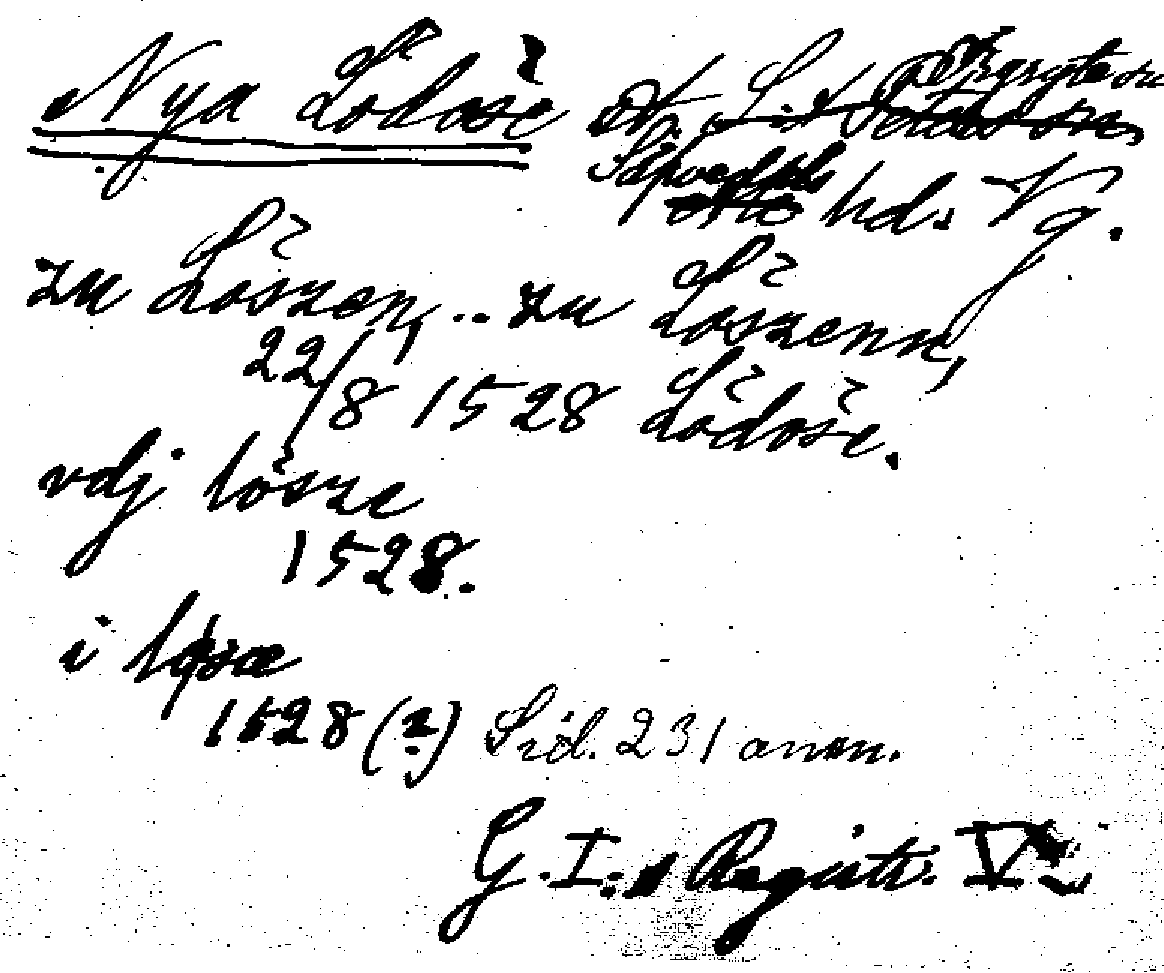 Nya Lödöse
Sävedals hd. Vg.
zu Löszen, .. zu Löszenn,
22/8 1528 Lödöse.
vdj lösze
1528.
i løsæ
1528 (2) Sid. 231 anm.
G. I:s Registr. V